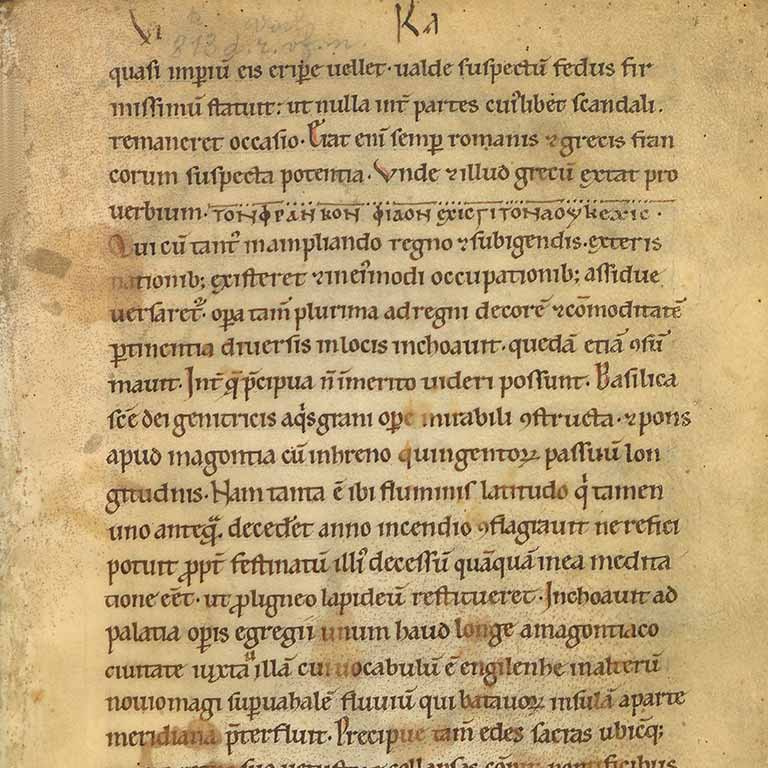 Ka
quasi imp̄iū eis erip̄e uellet· ualde suspectū fedus fir
missimū statuit: ut nulla int̄ partes cui᷒libet scandali.
remaneret occasio· Erat eni᷒ semp̄ romanis ⁊grecis fran
corum suspecta potentia· Vnde ⁊illud grecū extat pro
uerbium· ΤΟΝΦΡΑΝΚΟΝ ΦΙΛΟΝ ΕΧΙСΓΙΤΟΝΑΟΥΚΕΧΙС·
Qui cū tant᷒ inampliando regno ⁊subigendis· exteris
nationib; existeret ⁊in ei᷒modi occupationib; assidue
uersaret᷒· opa tam̄ plurima adregni decorē ⁊cōmoditatē
ꝑtinentia diuersis inlocis inchoauit· quedā etiā ꝯsū
mauit· Int̄ q̄ p̄cipua n̄ īmerito uideri possunt· Basilica
sc̄e dei genitricis aq̇sgrani ope mirabili ꝯstructa· ⁊pons
apud magontia cū inhreno quingentoꝝ passuū lon
gitudinis· Nam tanta ē ibi fluminis latitudo q̇ tamen
uno anteq̄ᵃ decedet̄ anno incendio ꝯflagrauit ne refici
potuit ꝓpt̄ festinatū illi᷒ decessū quāquā inea medita
tione eēt· ut ꝓligneo lapideū restitueret· Inchoauit ad
palatia opis egregii unum haud longe amagontiaco
ciuitate iuxta illā cui uocabulū ē engilenhe inalterū
nouiomagi sup̄uahalē fluuiū qui batauoꝝ insulā aparte
meridiana p̄terfluit· Precipue tam̄ edes sacras ubicq̄;